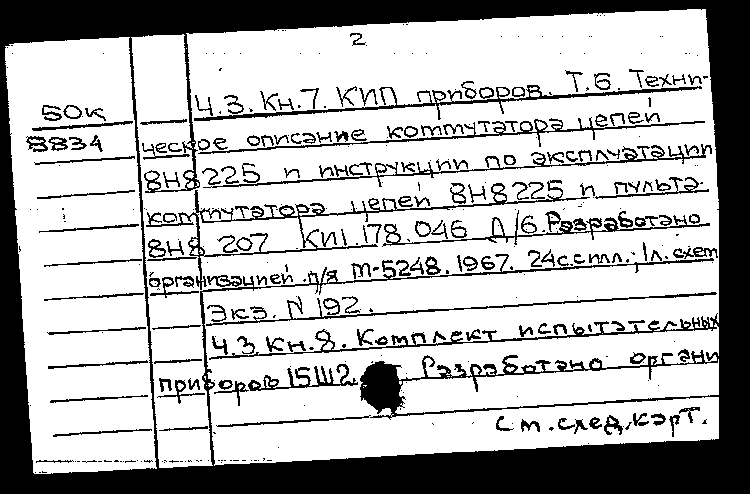 2
50к
8834
Ч.3. Кн.7. КИП приборов. Т.6. Техни-
ческое описание коммутатора цепей
8Н8225 и инструкции по эксплуатации
коммутатора цепей 8Н8225 и пульта
8Н8 207 КИ1.178.046 Д/6. Разработано
организацией п/я М-5248. 1967. 24с. с илл.; 1л. схем
Экз. N 192.
Ч.3. Кн.8. Комплект испытательных
приборов 15Ш2. Разработано органи
См. след. карт.